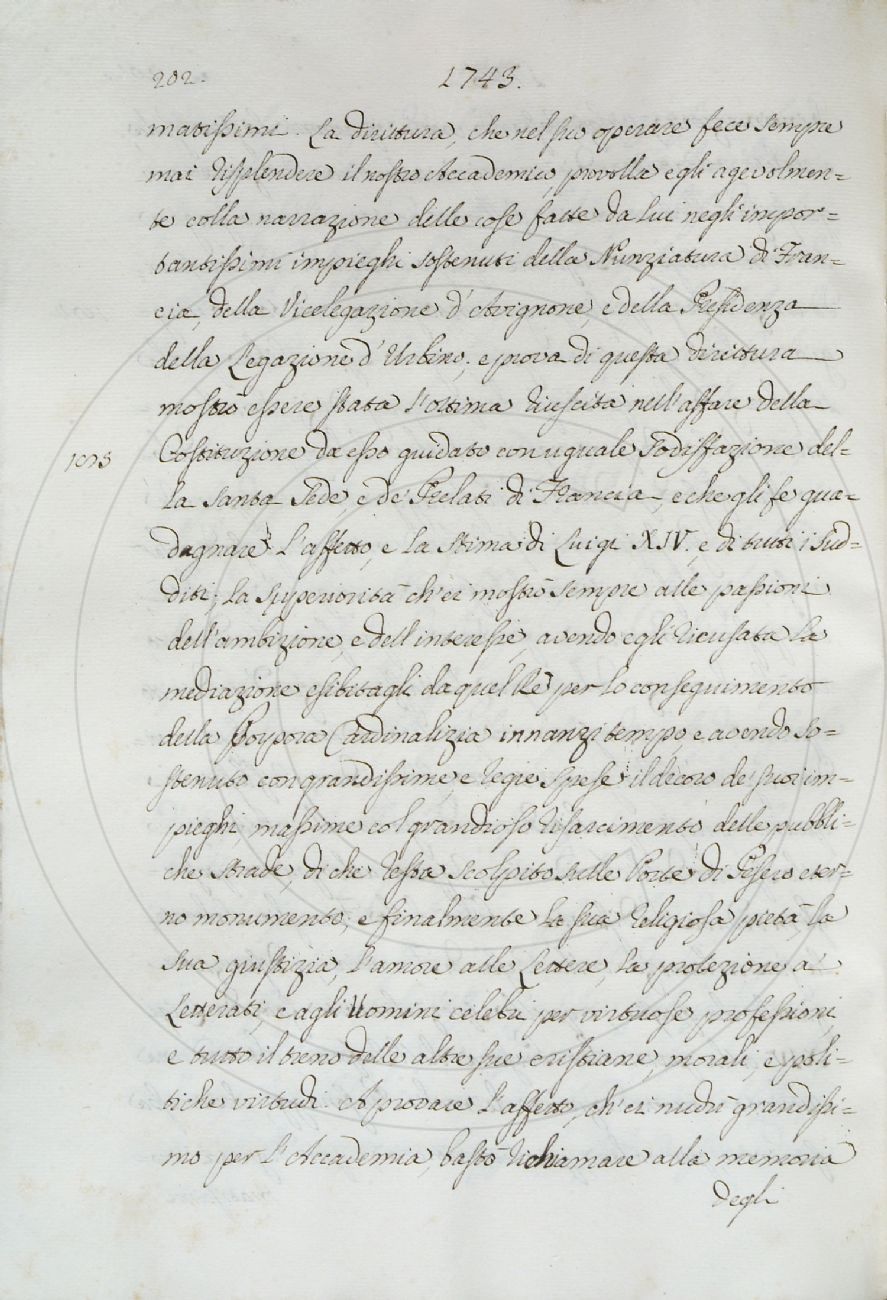 202.
1743.
matissimi. La dirittura, che nel suo operare fece sempre
mai risplendere il nostro Accademico, provolla egli agevolmen=
te colla narrazione delle cose fatte da lui negli impor=
tantissimi impieghi sostenuti della Nunziatura di Fran=
cia, della Vicelegazione d'Avignone, e della Presidenza
della Legazione d'Urbino; e prova di questa dirittura
mostrò essere stata l'ottima riuscita nell'affare della
Costituzione da esso guidato con uguale sodisfazione del=
la Santa Sede, e de' Prelati di Francia, e che gli fe gua=
dagnare l'affetto, e la stima di Luigi XIV. e di tutti i sud=
diti; la superiorità ch'ei mostrò sempre alle passioni
dell'ambizione, e dell'interesse, avendo egli ricusata la
mediazione esibitagli da quel Rè per lo conseguimento
della Porpora Cardinalizia innanzi tempo, e avendo so=
stenuto con grandissime, e regie spese il decoro de' suoi im=
pieghi massime col grandioso risarcimento delle pubbli=
che strade, di che resta scolpito sulle Porte di Pesero eter=
no monumento; e finalmente la sua religiosa pietà, la
sua giustizia, l'amore alle Lettere, la protezione a'
Letterati, e agli Uomini celebri per virtuose professioni,
e tutto il treno delle altre sue cristiane, morali, e poli=
tiche virtudi. A provare l'affetto, ch'ei nudrì grandissi=
mo per l'Accademia, bastò richiamare alla memoria
degli